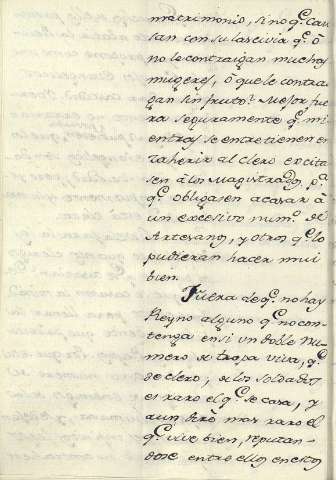 matrimonio, sino q.e cau
san con su lascivia q.e ó
no le contraigan muchas
mugeres, ó que le contrai
gan sin fruto. Mejor fue
ra seguramente q.e mi
entras se entretienen en
zaherir al clero excita
sen á los Magistrados, p.a
q.e obligasen a casar á
un excesivo num.o de
Artesanos, y otros q.e lo
pudieran hacer mui
bien.
Fuera de q.e no hay
Reyno alguno q.e no con
tenga en si un doble nu
mero de tropa viva, q.e
de clero; de los soldados
es raro el q.e se casa, y
aun diré mas raro el
q.e vive bien, reputan-
dose entre ellos en estos